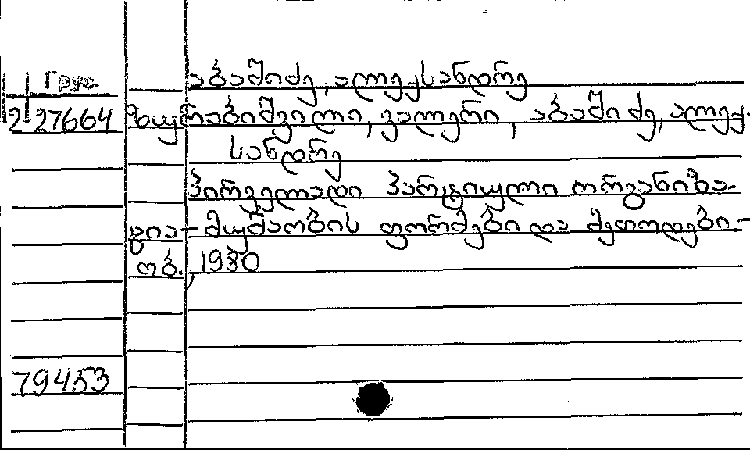 Груз
აბაშიძე, ალექსანდრე
2 27664 ზურაბიშვილი, ვალერი, აბაშიძე, ალექ-
სანდრე
პირველადი პარტიული ორგანიზა-
ცია - მუშაობის ფორმები და მეთოდები.-
თბ., 1980
79453